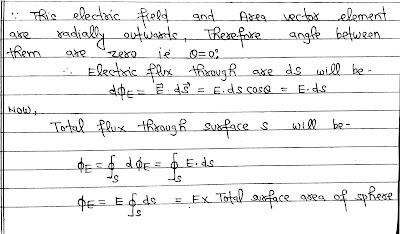 ∵ This electric field and Area vector element
are radially outwards, Therefore angle between
them are zero ie θ=0°
∴ Electric flux through are ds will be -
dϕE = E⃗. ds⃗ = E.ds cosθ = E.ds
Now,
Total flux through surface s will be -
ϕE = ∮S dϕE = ∮S E.ds
ϕE = E ∮S ds = E× Total surface area of sphere